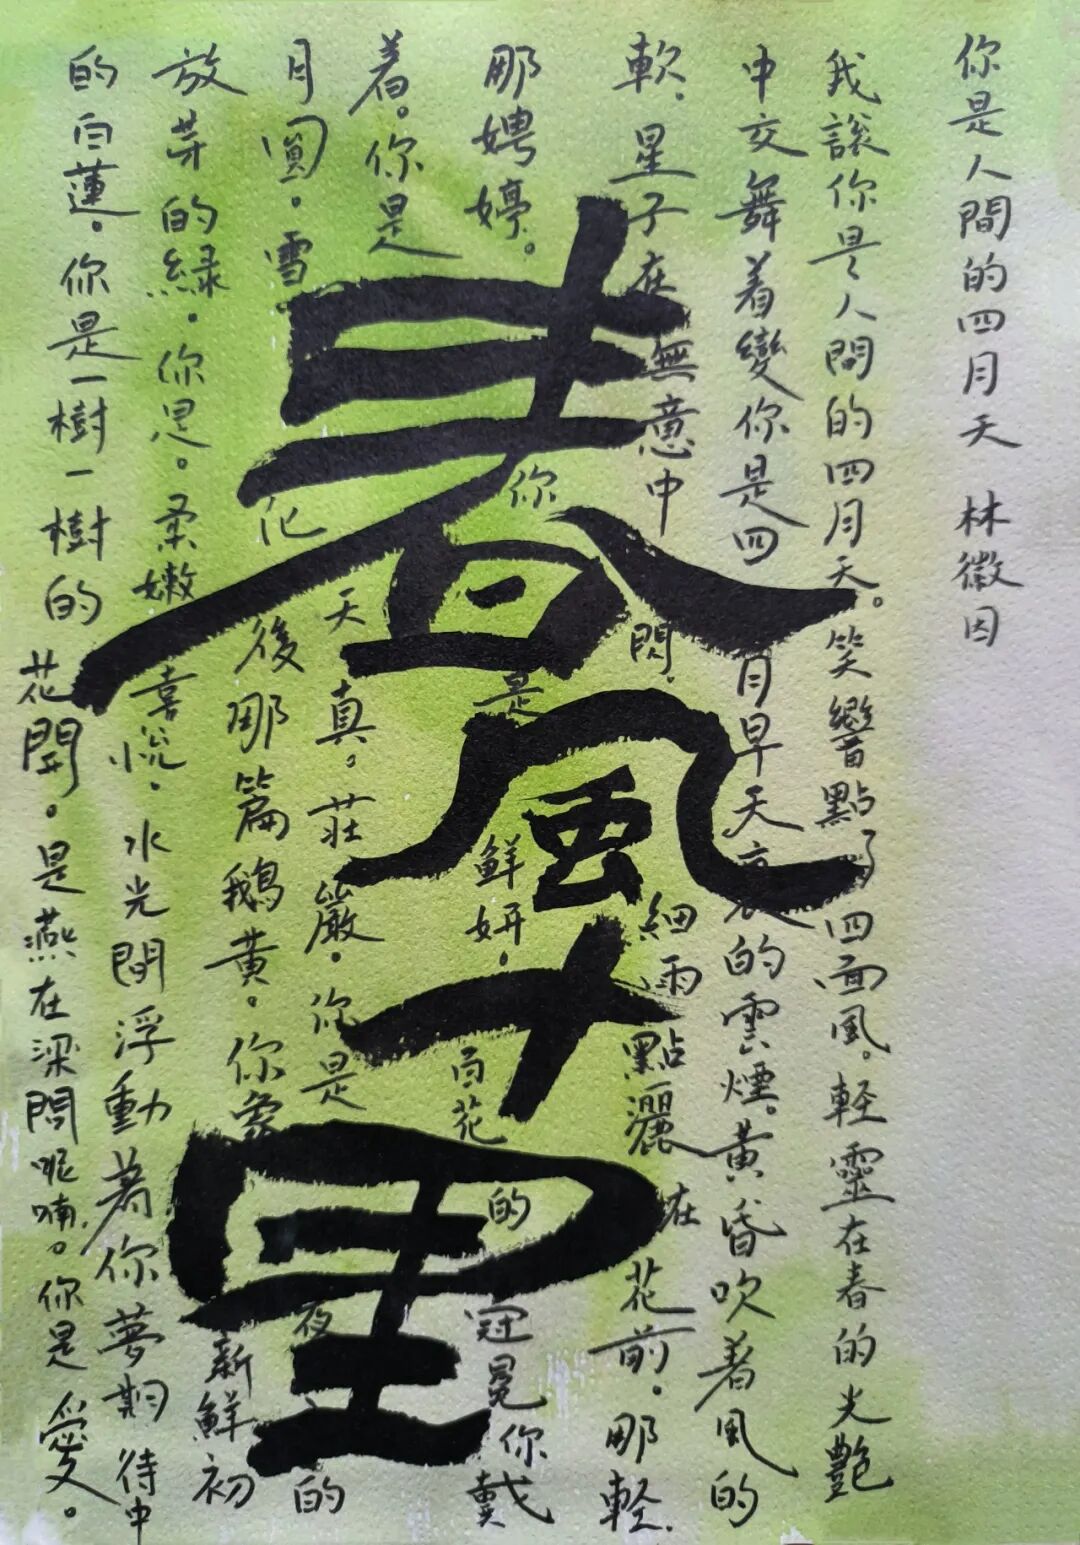 你是人間的四月天 林徽因
我說你是人間的四月天。笑響點了四面風。輕靈在春的光艷
中交舞着變你是四月早天裏的雲煙。黃昏吹着風的
軟，星子在無意中閃，細雨點灑在花前。那輕，
那娉婷。你是鮮妍。百花的冠冕你戴
着。你是天真。莊嚴。你是夜的
月圓。雪化後那篇鵝黃。你象新鮮初
放芽的綠。你是。柔嫩喜悅，水光間浮動着你夢期待中
的白蓮。你是一樹一樹的花開。是燕在梁間呢喃。你是愛。
春風十里